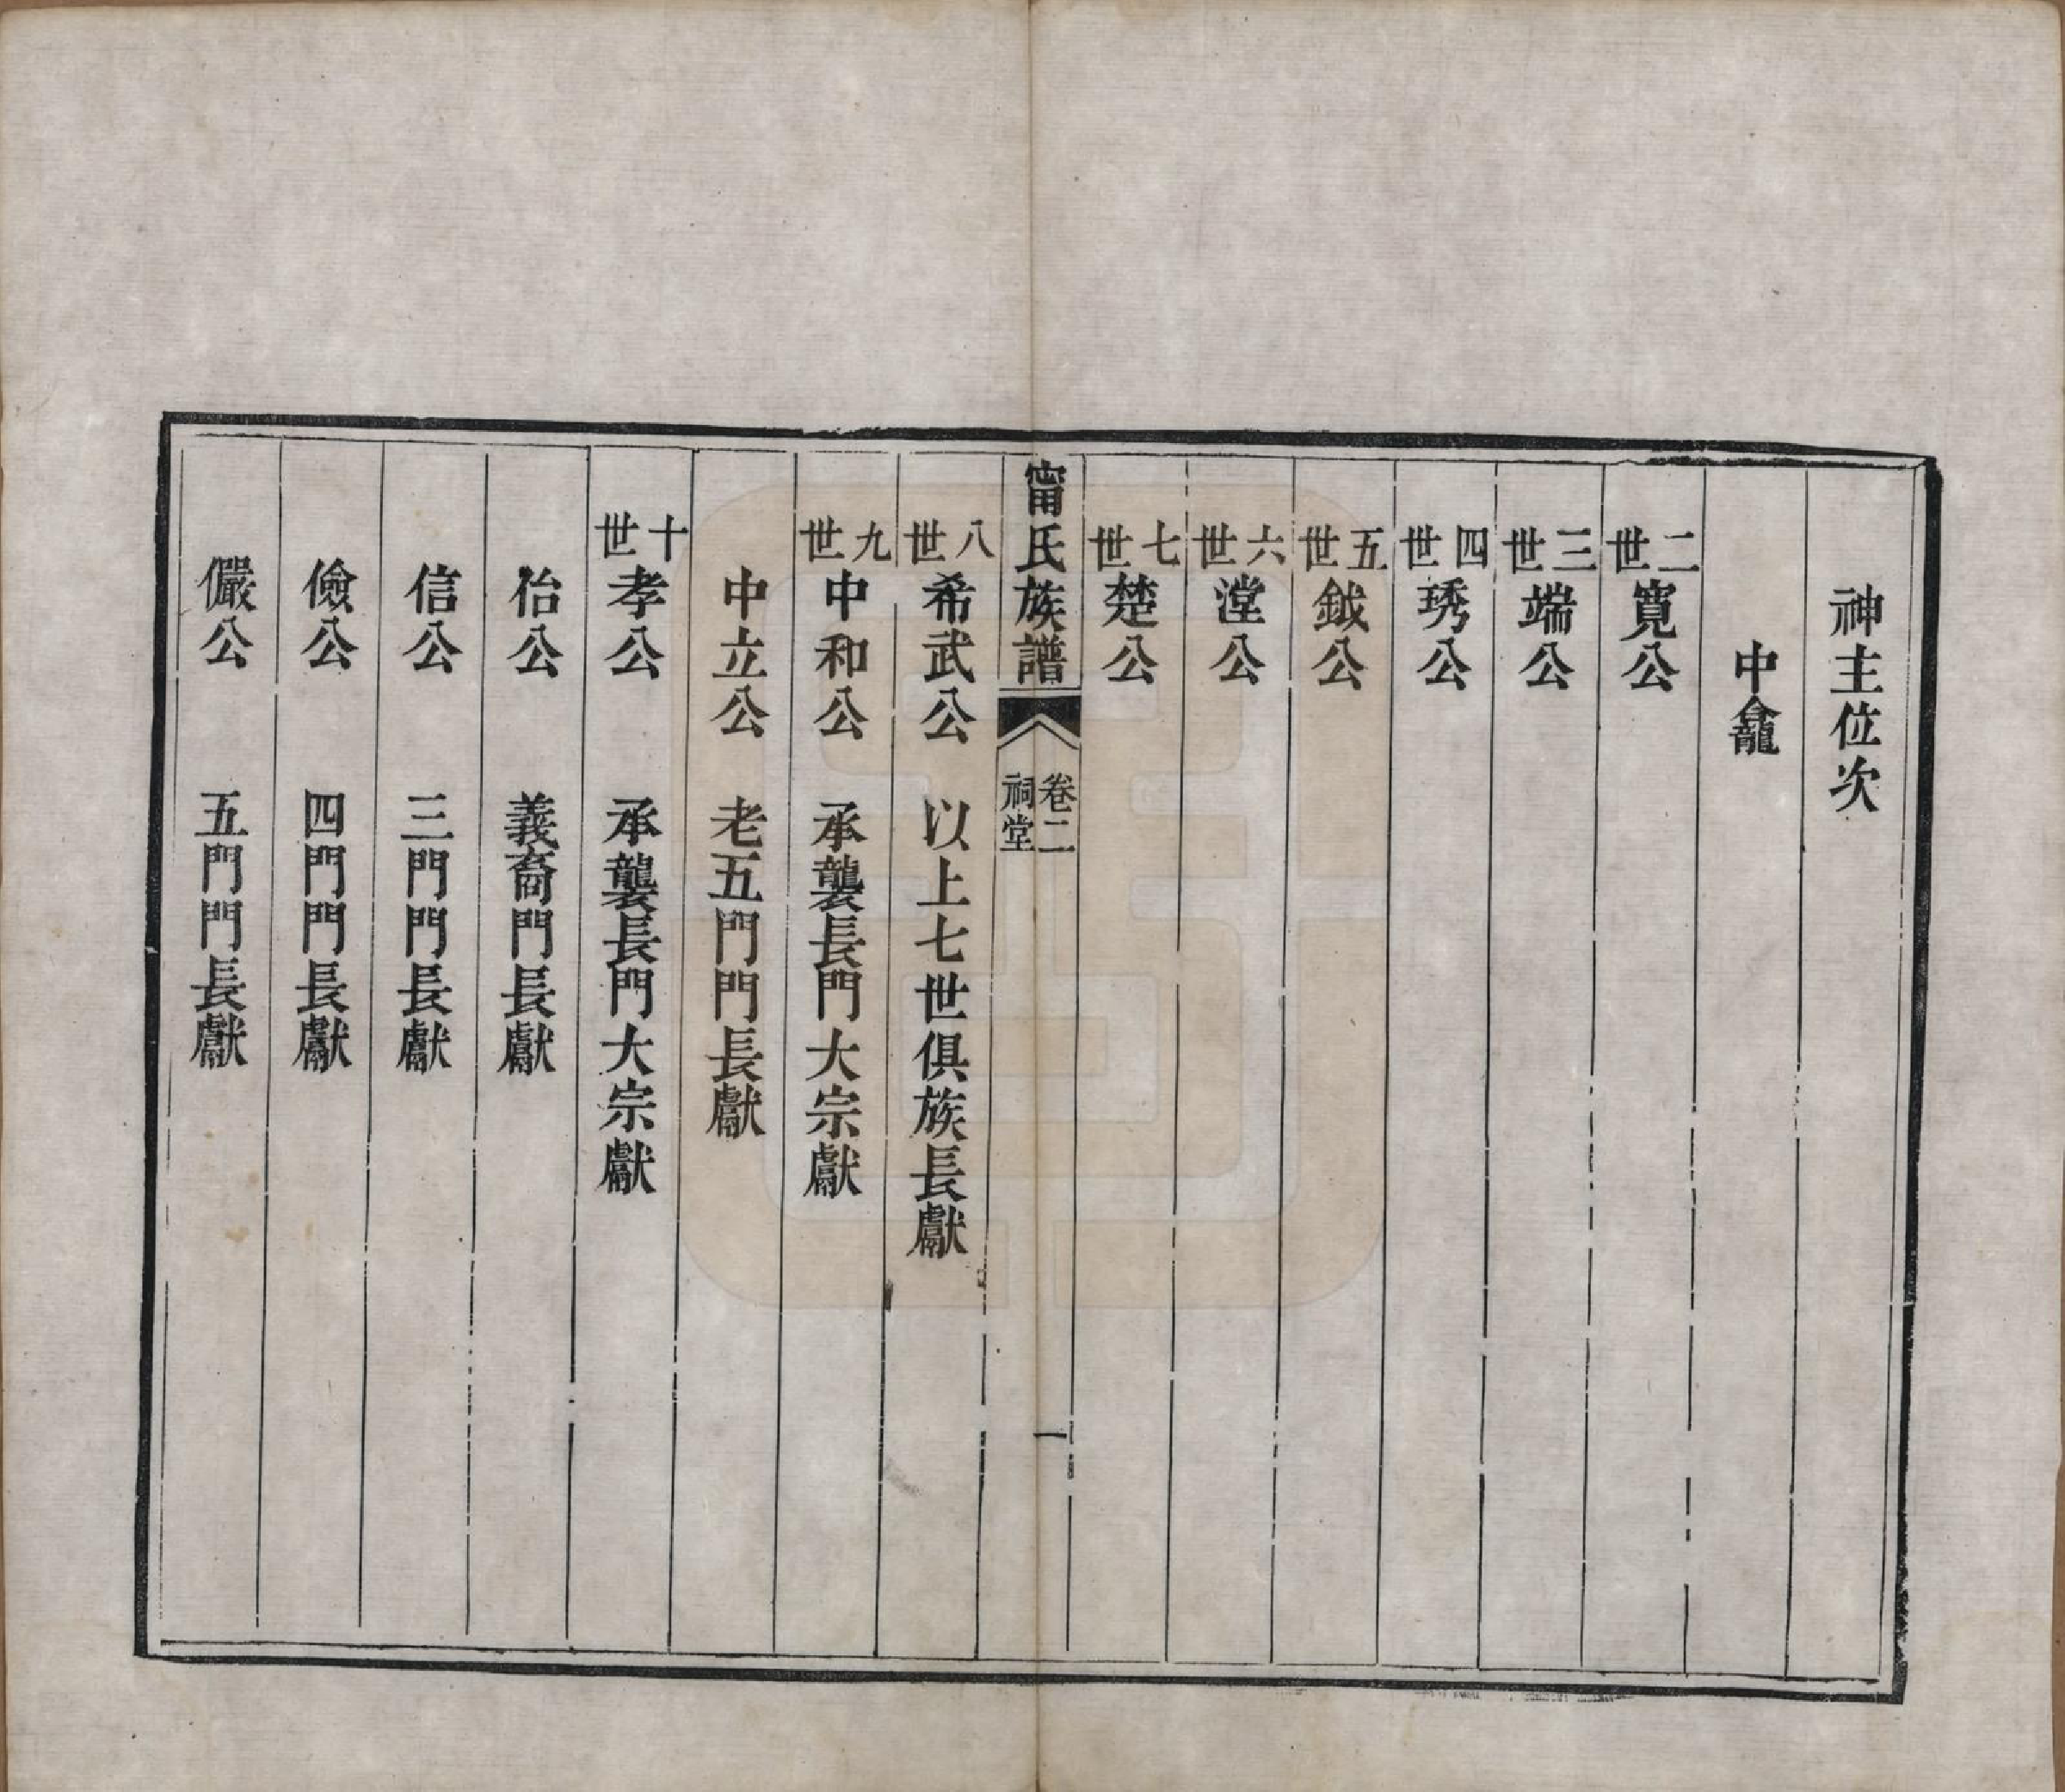 神主位次
中龕
二世寬公
三世端公
四世琇公
五世鉞公
六世漟公
七世楚公
甯氏族譜 卷二 祠堂 一
八世希武公 以上七世俱族長獻
九世中和公 承襲長門大宗獻
中立公 老五門門長獻
十世孝公 承襲長門大宗獻
佁公 義裔門長獻
信公 三門門長獻
儉公 四門門長獻
儼公 五門門長獻